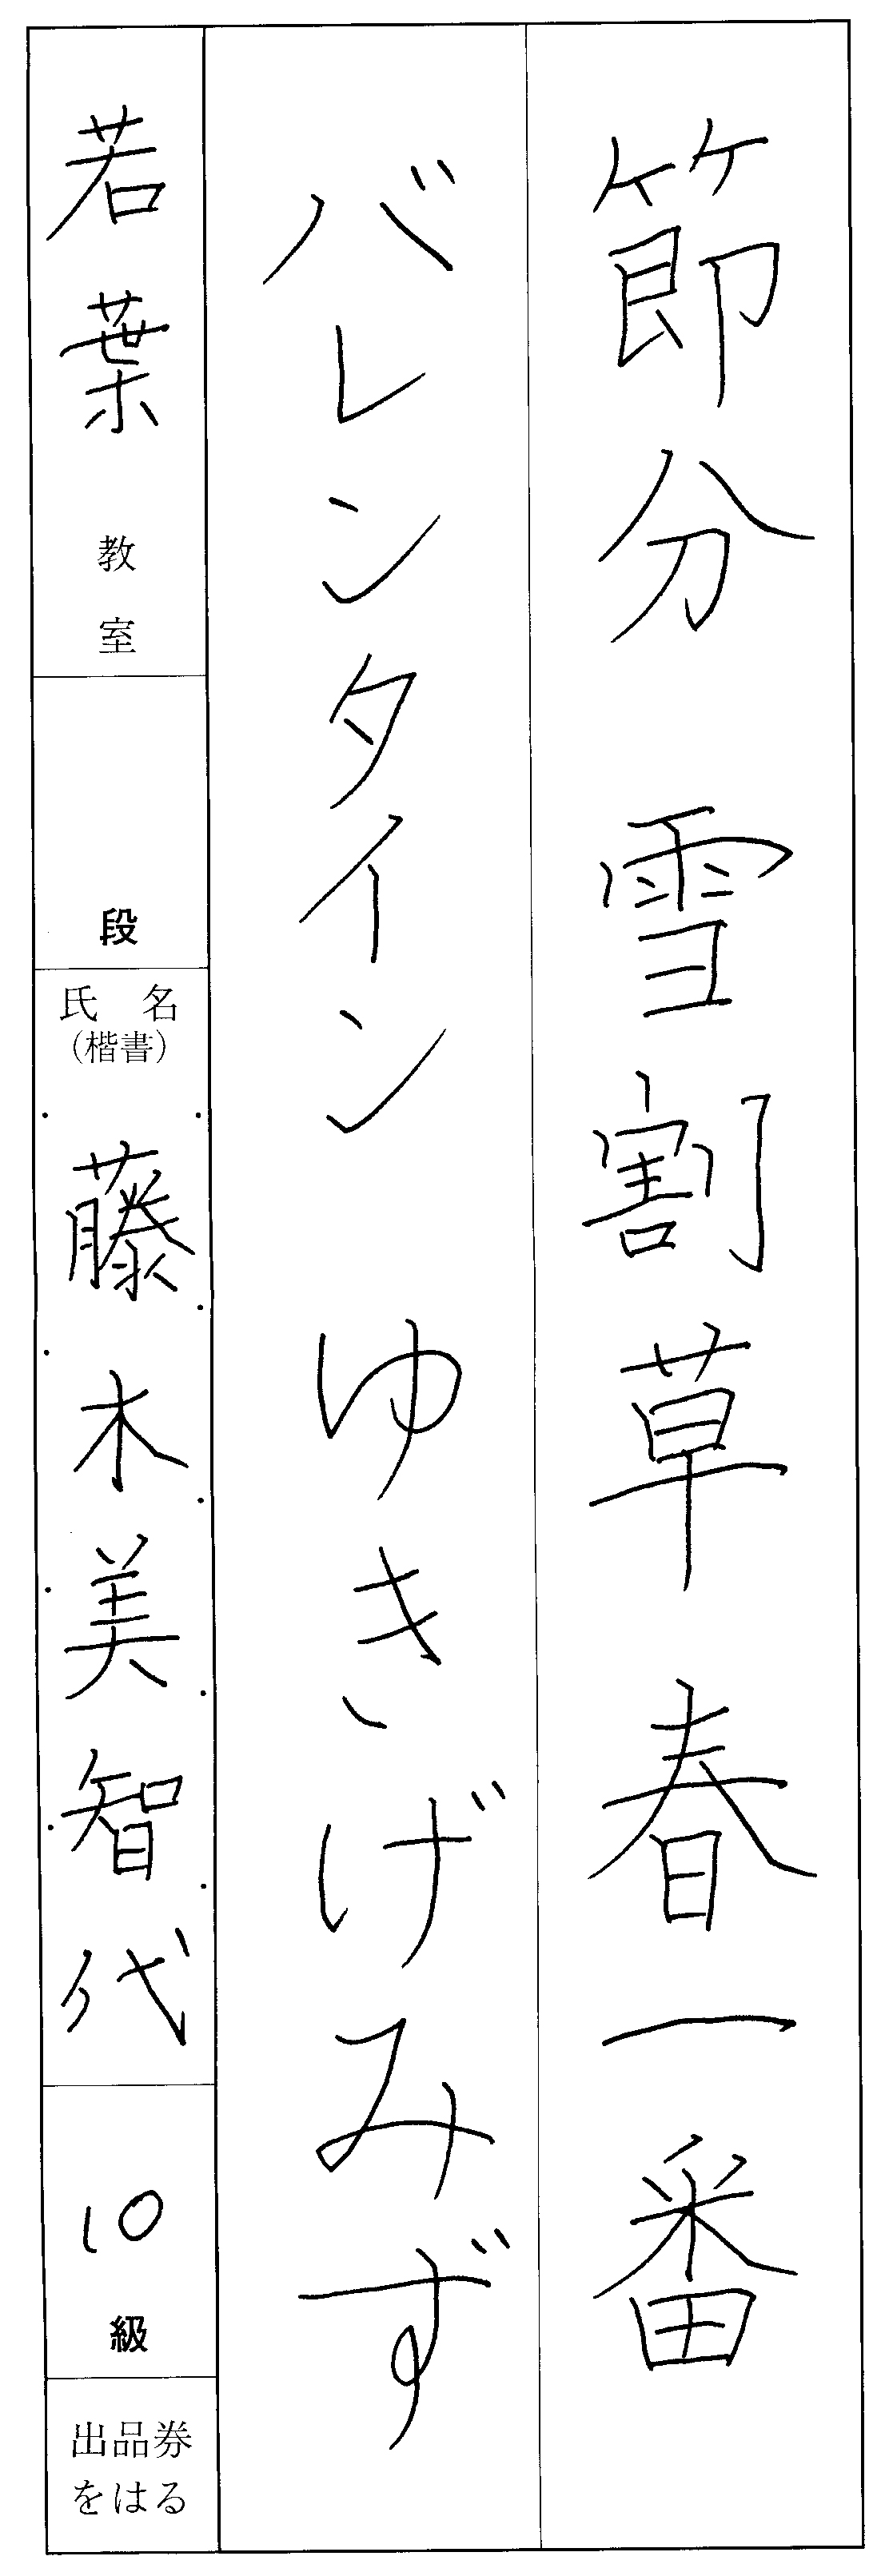 節分 雪割草 春一番
バレンタイン ゆきげみず
若葉教室
段
氏名
(楷書)
藤木美智代
10級
出品券
をはる